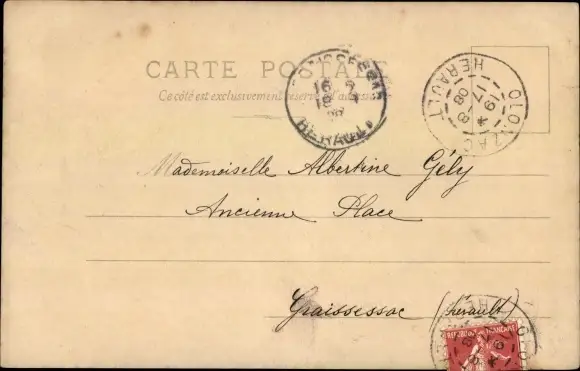 CARTE POSTALE
Ce côté est exclusivement réservé à l'adresse
OLONZAC
HERAULT
HERAULT
Mademoiselle Albertine Gély
Ancienne Place
Graissessac (Hérault)
REPUBLIQUE FRANCAISE